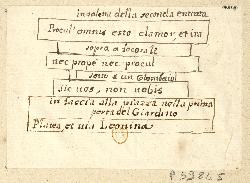 in salena della seconda entrata
Procul omnis esto clamor et ira
sopra a l'ocorale
nec propè nec procul
sotto a un Colombaio
sic uos, non uobis
in faccia alla piazza nella prima
porta del Giardino
Platea et uia Leonina